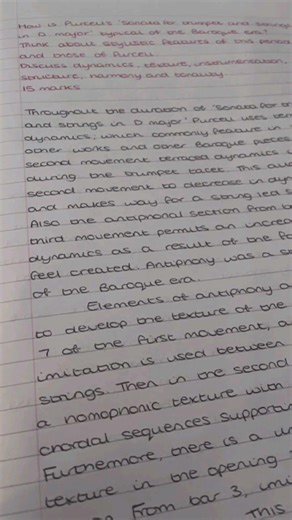 How is Purcell's 'Sonata for trumpet and strings
in D major' typical of the Baroque era?
Think about stylistic features of this period
and those of Purcell.
Discuss dynamics, texture, instrumentation,
structure, harmony and tonality.
15 marks
Throughout the duration of 'Sonata for
and strings in D major' Purcell uses
dynamics, which commonly feature in
other works and other Baroque pieces
second movement terraced dynamics
during the trumpet tacet. This
second movement to decrease in
and makes way for a string led
Also the antiphonal section from
third movement permits an
dynamics as a result of the
feel created. Antiphony was a
of the Baroque era.
Elements of antiphony
to develop the texture of the
7 of the first movement,
imitation is used between
strings. Then in the second
a homophonic texture with
chordal sequences
Furthermore, there is a
texture in the opening
From bar 3,
This